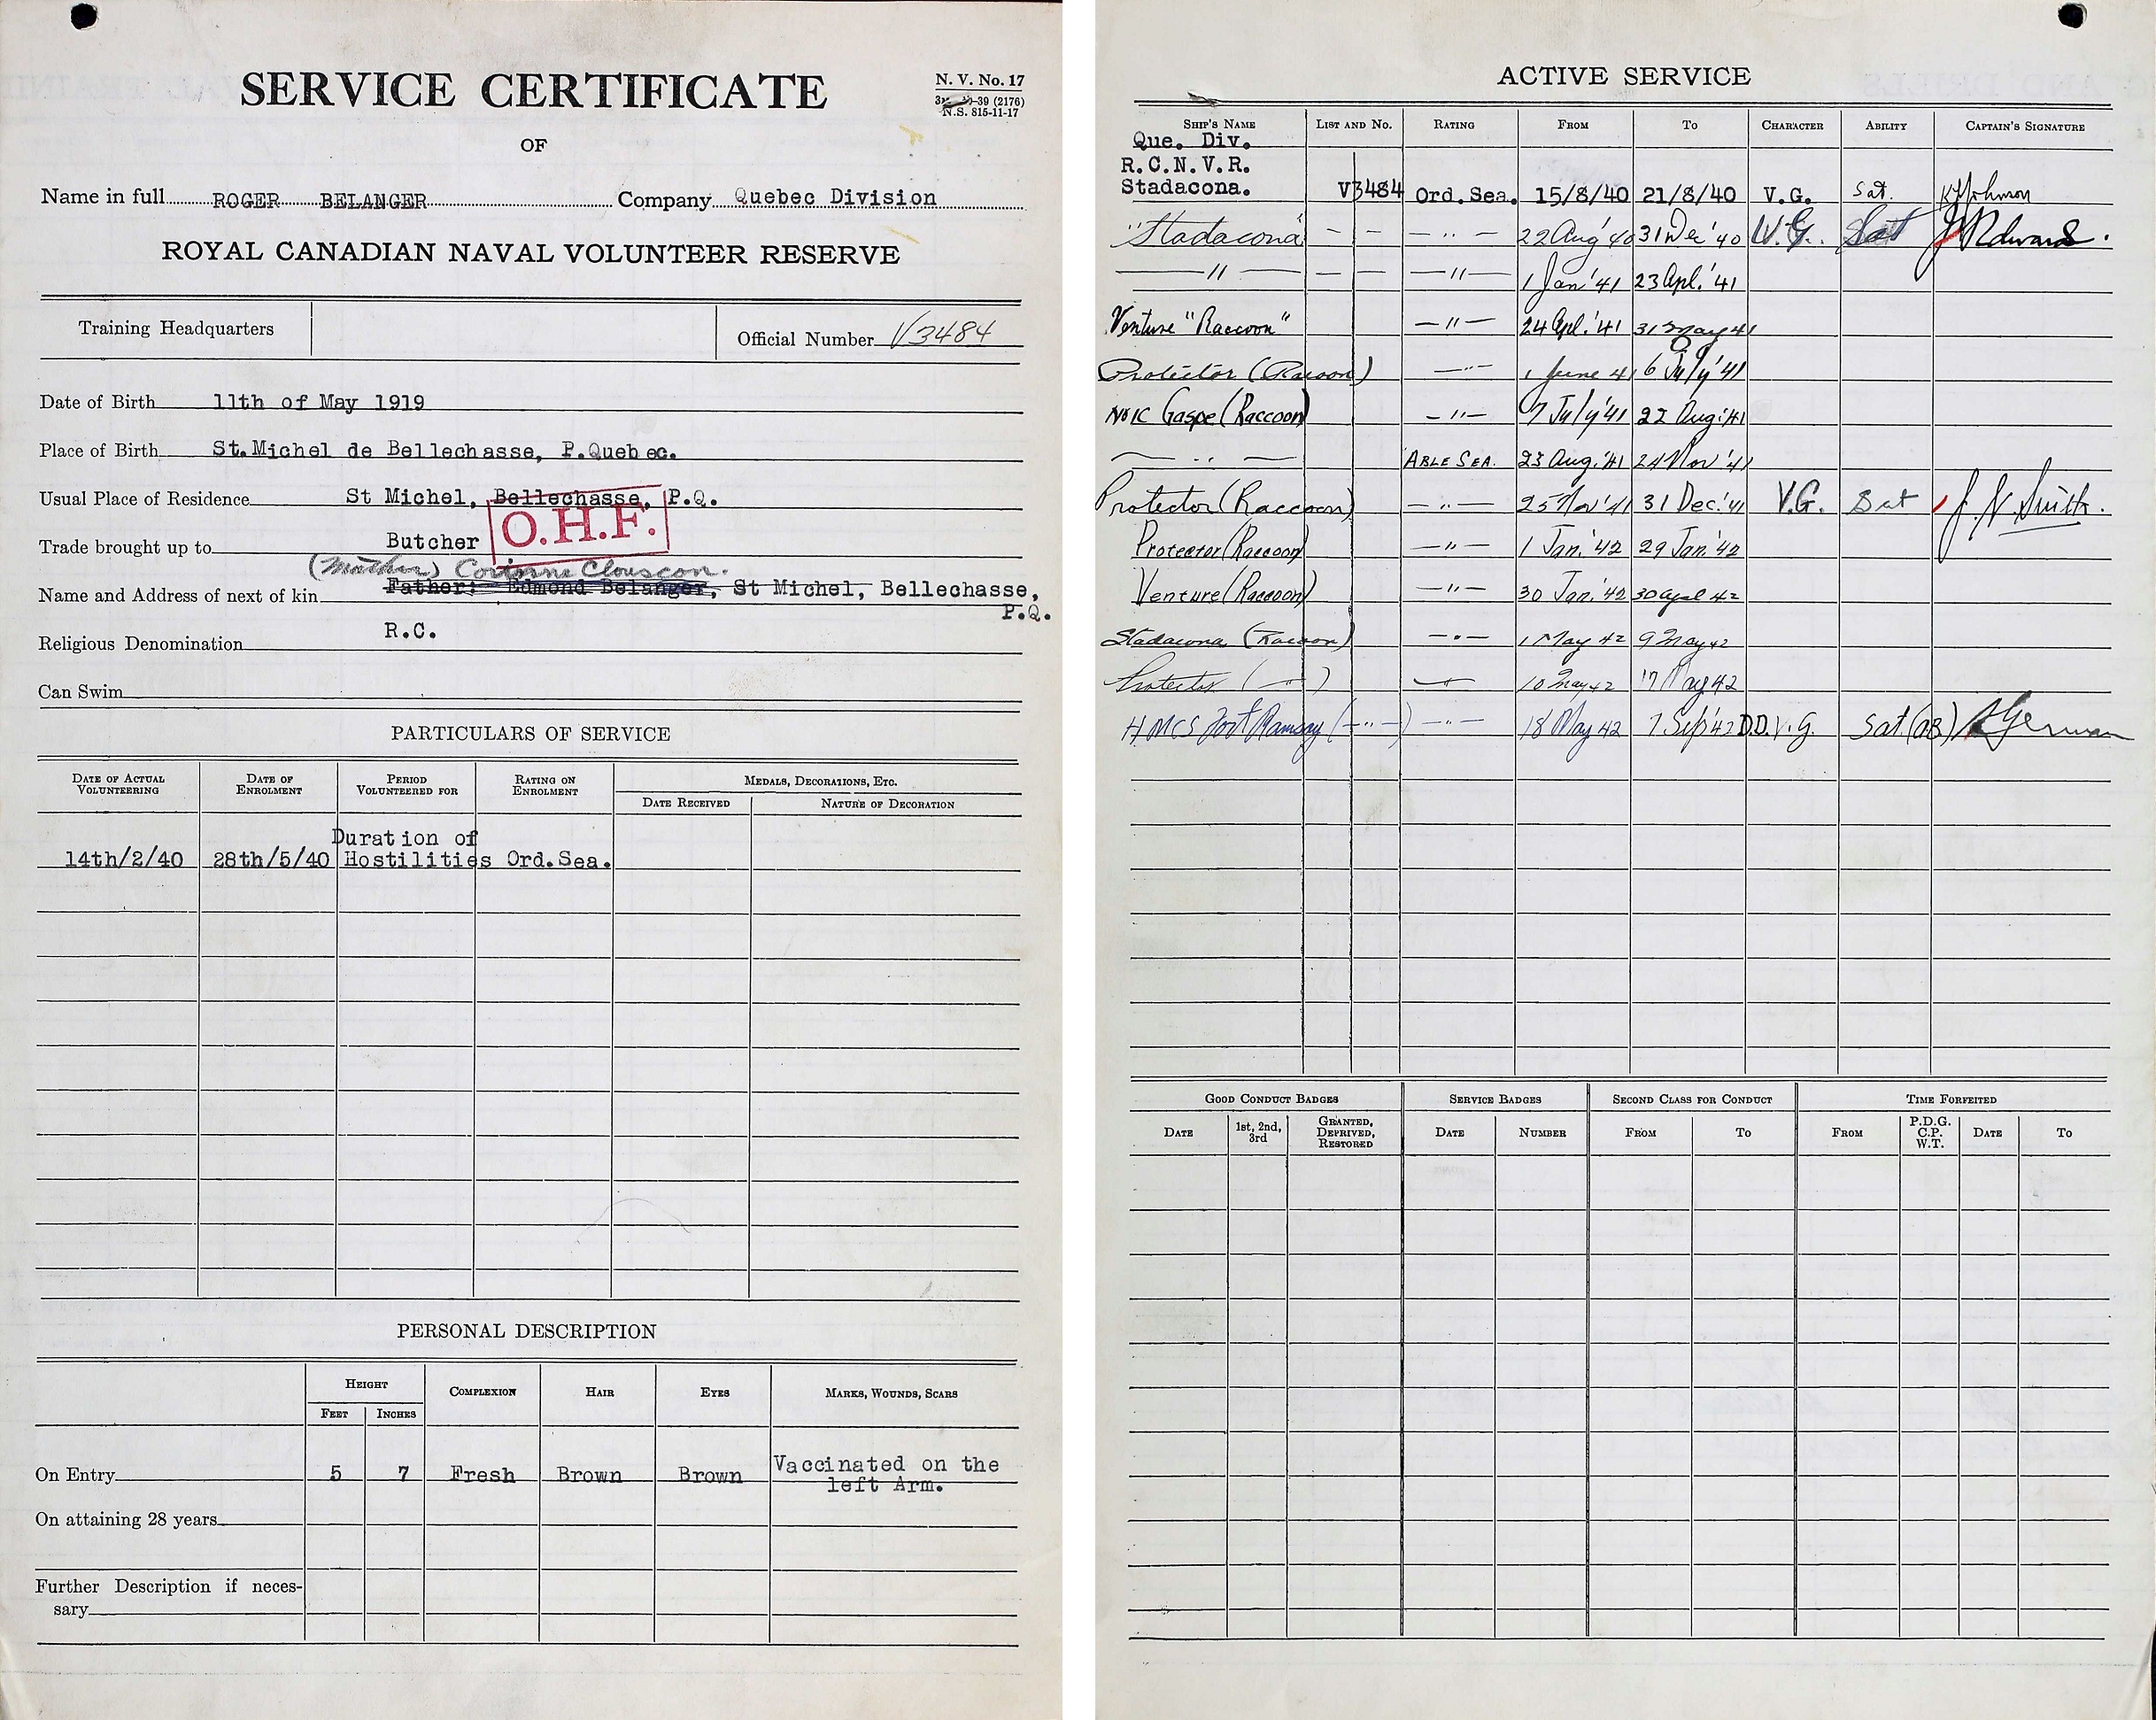 SERVICE CERTIFICATE
N. V. No. 17
-39 (2176)
N.S. 815-11-17
OF
Name in full ROGER BELANGER Company Quebec Division
ROYAL CANADIAN NAVAL VOLUNTEER RESERVE
Training Headquarters
Official Number V3484
Date of Birth 11th of May 1919
Place of Birth St.Michel de Bellechasse, P.Quebec.
Usual Place of Residence St Michel, Bellechasse, P.Q.
O.H.F.
Trade brought up to Butcher
(Mother) Corinne Clouscon.
Name and Address of next of kin Father: Edmond Belanger, St Michel, Bellechasse,
P.Q.
Religious Denomination R.C.
Can Swim
PARTICULARS OF SERVICE
DATE OF ACTUAL VOLUNTEERING DATE OF ENROLMENT PERIOD VOLUNTEERED FOR RATING ON ENROLMENT MEDALS, DECORATIONS, ETC.
DATE RECEIVED NATURE OF DECORATION
Duration of
14th/2/40 28th/5/40 Hostilities Ord.Sea.
PERSONAL DESCRIPTION
HEIGHT COMPLEXION HAIR EYES MARKS, WOUNDS, SCARS
FEET INCHES
On Entry 5 7 Fresh Brown Brown Vaccinated on the
left Arm.
On attaining 28 years
Further Description if neces-
sary
ACTIVE SERVICE
SHIP'S NAME LIST AND NO. RATING FROM TO CHARACTER ABILITY CAPTAIN'S SIGNATURE
Que. Div.
R.C.N.V.R.
Stadacona. V3484 Ord.Sea. 15/8/40 21/8/40 V.G. Sat. Johnson
"Stadacona" - - - " - 22 Aug '40 31 Dec '40 V.G. Sat Edwards.
— " — — — — " — 1 Jan '41 23 Apl. '41
Venture "Raccoon" — " — 24 Apl. '41 31 May 41
Protector (Racoon) — " — 1 June 41 6 July '41
NOIC Gaspe (Raccoon) — " — 7 July '41 22 Aug. '41
— " — ABLE SEA. 23 Aug. '41 24 Nov '41
Protector (Raccoon) — " — 25 Nov '41 31 Dec. '41 V.G. Sat J. N. Smith.
Protector (Raccoon) — " — 1 Jan. '42 29 Jan. '42
Venture (Raccoon) — " — 30 Jan. '42 30 Apl 42
Stadacona (Racoon) — " — 1 May 42 9 May 42
Protector ( — " — ) — " — 10 May 42 17 May 42
HMCS Fort Ramsay ( — " — ) — " — 18 May 42 7 Sep '42 D.D. V.G. Sat (AB) German
GOOD CONDUCT BADGES SERVICE BADGES SECOND CLASS FOR CONDUCT TIME FORFEITED
DATE 1st, 2nd, 3rd GRANTED, DEPRIVED, RESTORED DATE NUMBER FROM TO FROM P.D.G. C.P. W.T. DATE TO